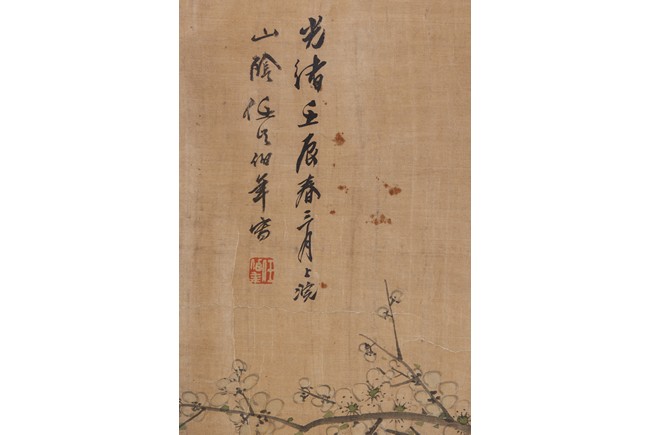 光緒壬辰春三月上浣
山陰任頤伯年寫
任伯年